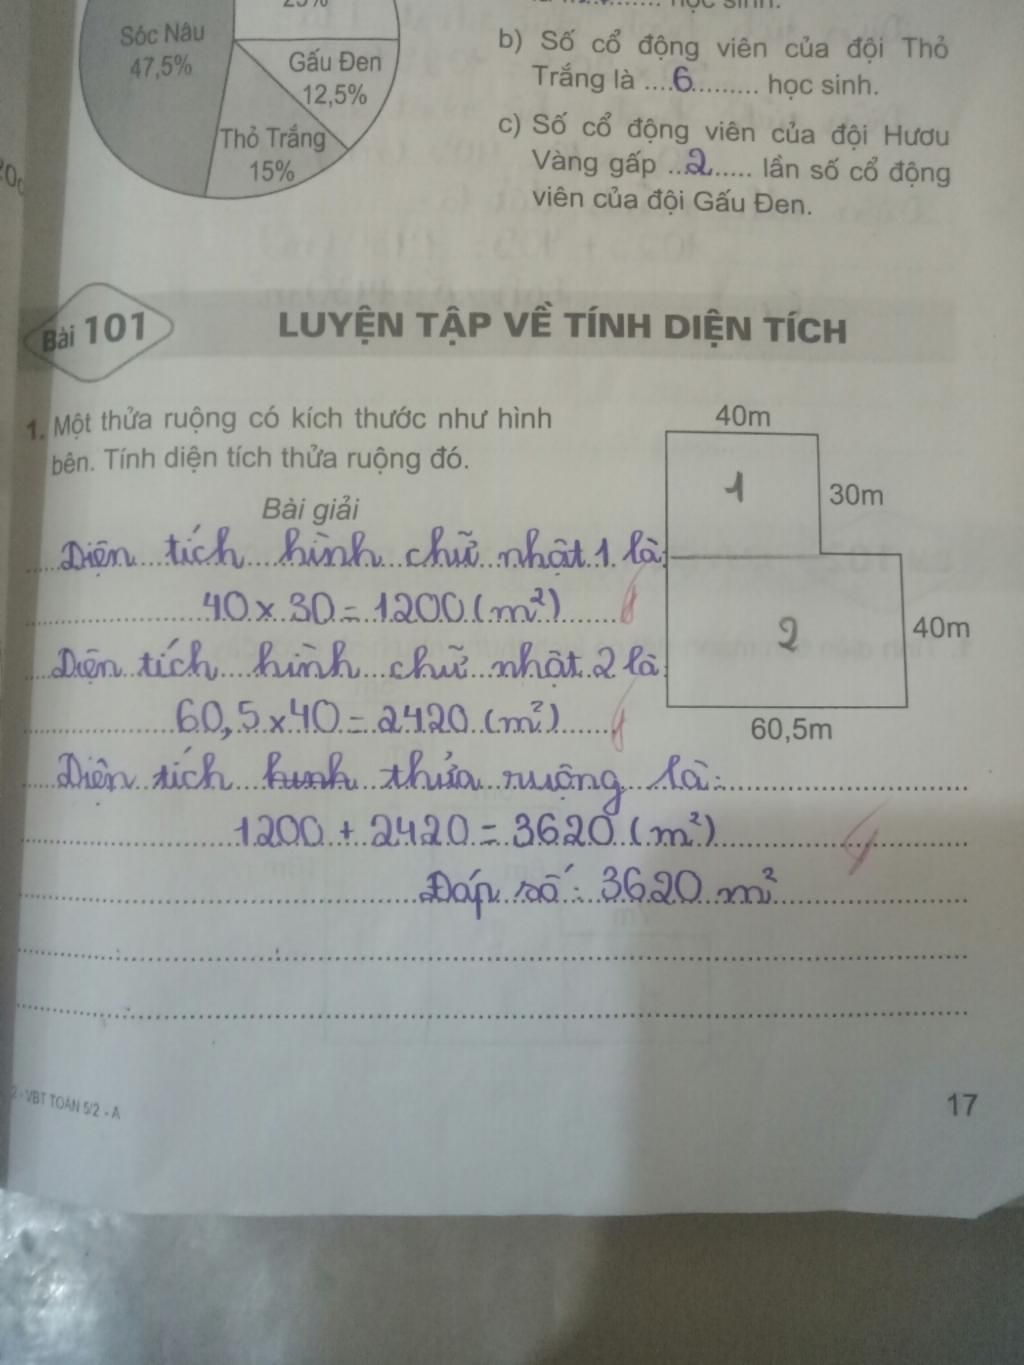 Sóc Nâu
47,5%
Gấu Đen
12,5%
Thỏ Trắng
15%
b) Số cổ động viên của đội Thỏ
Trắng là ....6......... học sinh.
c) Số cổ động viên của đội Hươu
Vàng gấp ...2...... lần số cổ động
viên của đội Gấu Đen.
Bài 101
LUYỆN TẬP VỀ TÍNH DIỆN TÍCH
1. Một thửa ruộng có kích thước như hình
bên. Tính diện tích thửa ruộng đó.
40m
1
30m
2
40m
60,5m
Bài giải
Diện tích hình chữ nhật 1 là:
40 x 30 = 1200 (m²)
Diện tích hình chữ nhật 2 là:
60,5 x 40 = 2420 (m²)
Diện tích thửa ruộng là:
1200 + 2420 = 3620 (m²)
Đáp số: 3620 m²
2 - VBT TOÁN 5/2 - A
17